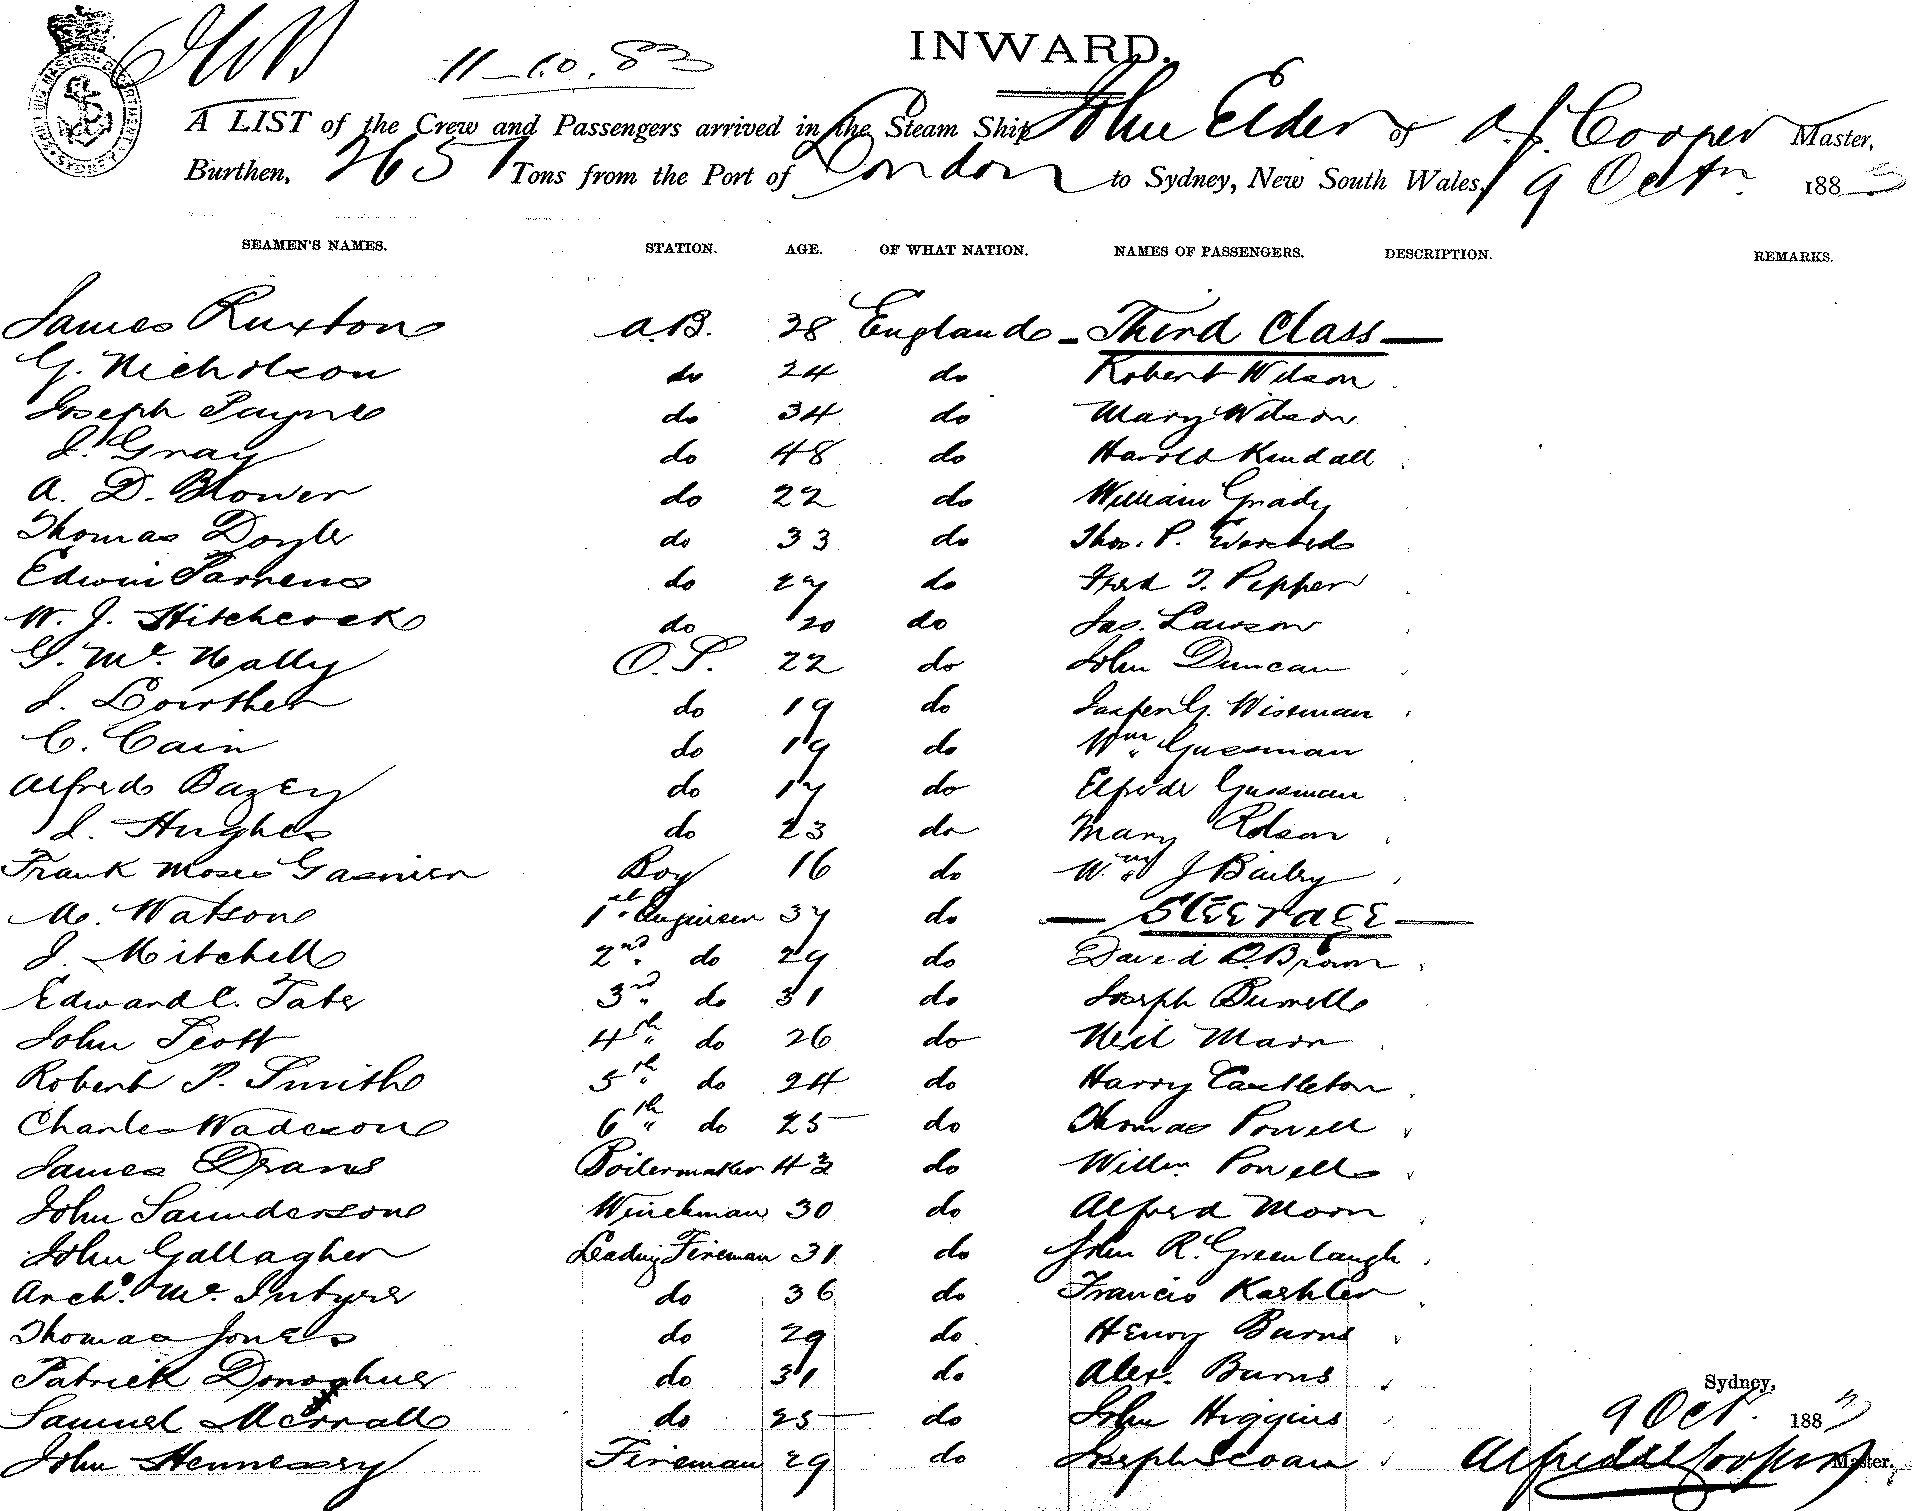 11-10.83
INWARD.
A LIST of the Crew and Passengers arrived in the Steam Ship John Elder of A. J. Cooper Master,
Burthen, 2651 Tons from the Port of London to Sydney, New South Wales, 9 Octr 1883
SEAMEN'S NAMES. STATION. AGE. OF WHAT NATION. NAMES OF PASSENGERS. DESCRIPTION. REMARKS.
James Ruxton A.B. 38 England - Third Class -
G. Nicholson do 24 do Robert Wilson
Joseph Payne do 34 do Mary Wilson
J. Gray do 48 do Harold Kendall
A. D. Blower do 22 do William Grady
Thomas Doyle do 33 do Thos. P.
Edwin Parrens do 27 do Fred T. Pepper
W. J. Hitchcock do 20 do Jas. Lawson
G. Mc. Nally O.S. 22 do John Duncan
J. Lowther do 19 do G. Wissman
C. Cain do 19 do Wm Gussman
Alfred Bazey do 17 do Elfrede Gussman
J. Hughes do 23 do Mary
Frank Moses Boy 16 do Wm J Bailey
A. Watson 1st Engineer 37 do - Steerage -
J. Mitchell 2nd do 29 do David D. Brown
Edward C. Tate 3rd do 31 do Joseph Burnell
John Scott 4th do 26 do Neil Marr
Robert P. Smith 5th do 24 do Harry Castleton
Charles Wadeson 6th do 25 do Thomas Powell
James Deans Boilermaker 43 do Willm Powell
John Saunderson Winchman 30 do Alfred Moon
John Gallagher Leading Fireman 31 do John R. Greenlaugh
Arch. Mc. Intyre do 36 do Francis Kaehler
Thomas Jones do 29 do Henry Burns
Patrick Donoghue do 31 do Alex. Burns
Sydney,
Samuel Merrall do 25 do John Higgins 9 Oct. 1883
John Hennessy Fireman 29 do Joseph Sloan Alfred J Cooper Master.